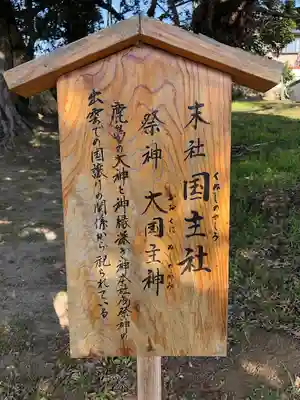 末社 国主社
くぬしのやしろ
祭神 大国主神
おおくにぬしのかみ
鹿島の大神と神縁深き神 本社御祭神の
出雲での国譲りの関係から祀られている